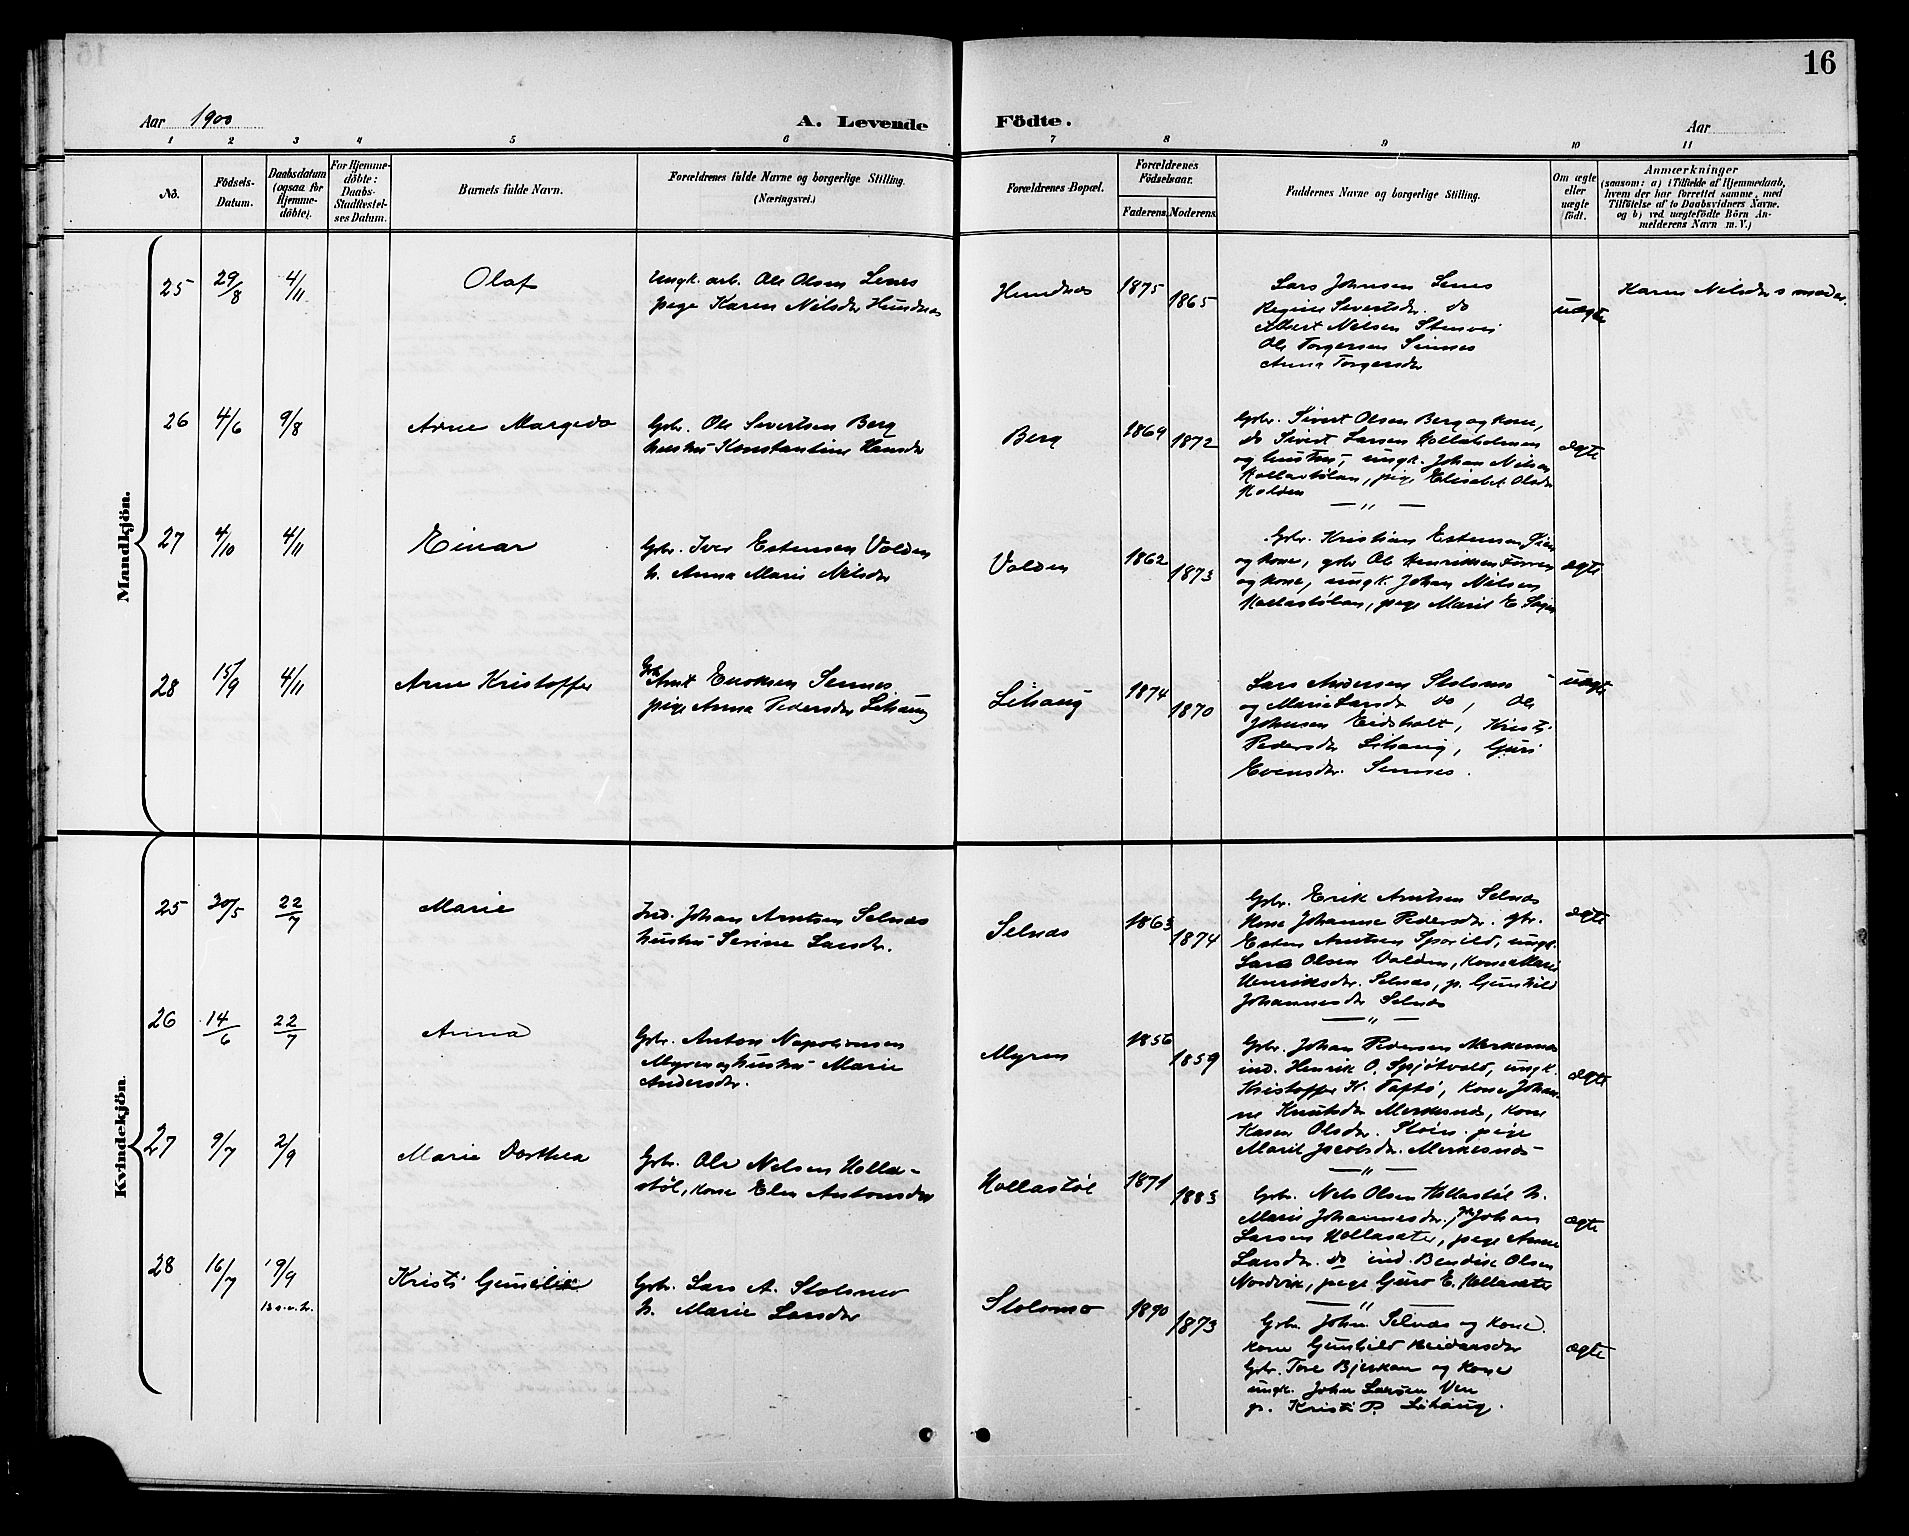 16
Aar 1900
A. Levende Födte.
Aar
1 2 3 4 5 6 7 8 9 10 11
No.
Födsels-
Datum.
Daabsdatum
(ogsaa for
Hjemme-
döbte).
For Hjemme-
döbte:
Daabs-
Stadfæstel-
ses Datum.
Barnets fulde Navn.
Forældrenes fulde Navne og borgerlige Stilling.
(Næringsvei.)
Forældrenes Bopæl.
Forældrenes
Födselsaar.
Faderens. Moderens.
Faddernes Navne og borgerlige Stilling.
Om ægte
eller
uægte
födt.
Anmærkninger
(saasom: a) i Tilfælde af Hjemmedaab,
hvem der har forrettet samme, med
Tilföielse af to Daabsvidners Navne.
og b) ved uægtefödte Börn An-
melderens Navn m. V.)
Mandkjön.
25 29/8 4/11 Olaf
Ungk. arb. Ole Olsen Senes
pige Karen Nilsdr Hundnes
Hundnes 1875 1865
Lars Johnsen Senes
Regine Sivertsdr. do
Albert Nilsen Stenvei
Ole Torgersen Sennes
Anna Torgersdr
uægte
Karen Nilsdr s moder.
26 4/6 9/8 Arne Margido
Gbr. Ole Sivertsen Berg
hustru Konstantine Hansdr
Berg 1869 1872
Gbr. Sivert Olsen Berg og kone,
do Sivert Larsen
og hustru, ungk. Johan Nilsen
Hollastølan, pige Elisabet Olsdr
Holden
ægte
27 4/10 4/11 Einar
Gbr. Iver Estensen Volden
h. Anna Marie Nilsdr
Volden 1862 1873
Gbr. Kristian Estensen
og kone, gbr Ole Henriksen Forren
og kone, ungk. Johan Nilsen
Hollastølan, pige Marit E
ægte
28 15/9 4/11 Arne Kristoffer
Gbr Arnt Enoksen Sennes
pige Anna Pedersdr Lihaug
Lihaug 1874 1870
Lars Andersen Stolsmo
og Marie Larsdr do, Ole
Johnsen Eidsholt, Kristi
Pedersdr Lihaug, Guri
Evensdr. Sennes.
uægte
Kvindekjön.
25 30/5 22/7 Marie
Ind. Johan Arntsen Selnæs
hustru Serine Larsdr.
Selnæs 1863 1874
Gbr. Erik Arntsen Selnæs
Kone Johanne Pedersdr. gbr.
Esten Arntsen Sporild, ungk.
Lars Olsen Volden, kone Marie
Henriksdr. Selnæs, p. Gunhild
Johannesdr Selnæs
ægte
26 14/6 22/7 Anna
Gbr. Anton Napolionsen
Myren og hustru Marie
Andersdr.
Myren 1856 1859
Gbr. Johan Pedersen Merkesnes
ind. Henrik O. Spjøtvold, ungk.
Kristoffer K. Taftø, kone Johan-
ne Knutsdr Merkesnes, kone
Karen Olsdr. Støen. pige
Marit Jacobsdr. Merkesnes
ægte
27 9/7 2/9 Marie Dorthea
Gbr. Ole Nelsen Holla-
støl, kone Elen Antonsdr
Hollastøl 1871 1883
Gbr. Nels Olsen Hollastøl h.
Marit Johannesdr, Johan
Larsen Hollasæter, pige Anne
Larsdr. do ind. Bendik Olsen
Nordvik, pige Guro E. Hollasæter
ægte
28 16/7 19/9 Kristi
Gbr. Lars A. Stolsmo
h. Marie Larsdr
Stolsmo 1890 1873
Gbr. John Selnæs og kone.
kone Gunhild Reidarsdr
Gbr. Tore Bjerkan og kone
ungk. John Larsen Ven
p. Kristi P. Lihaug.
ægte